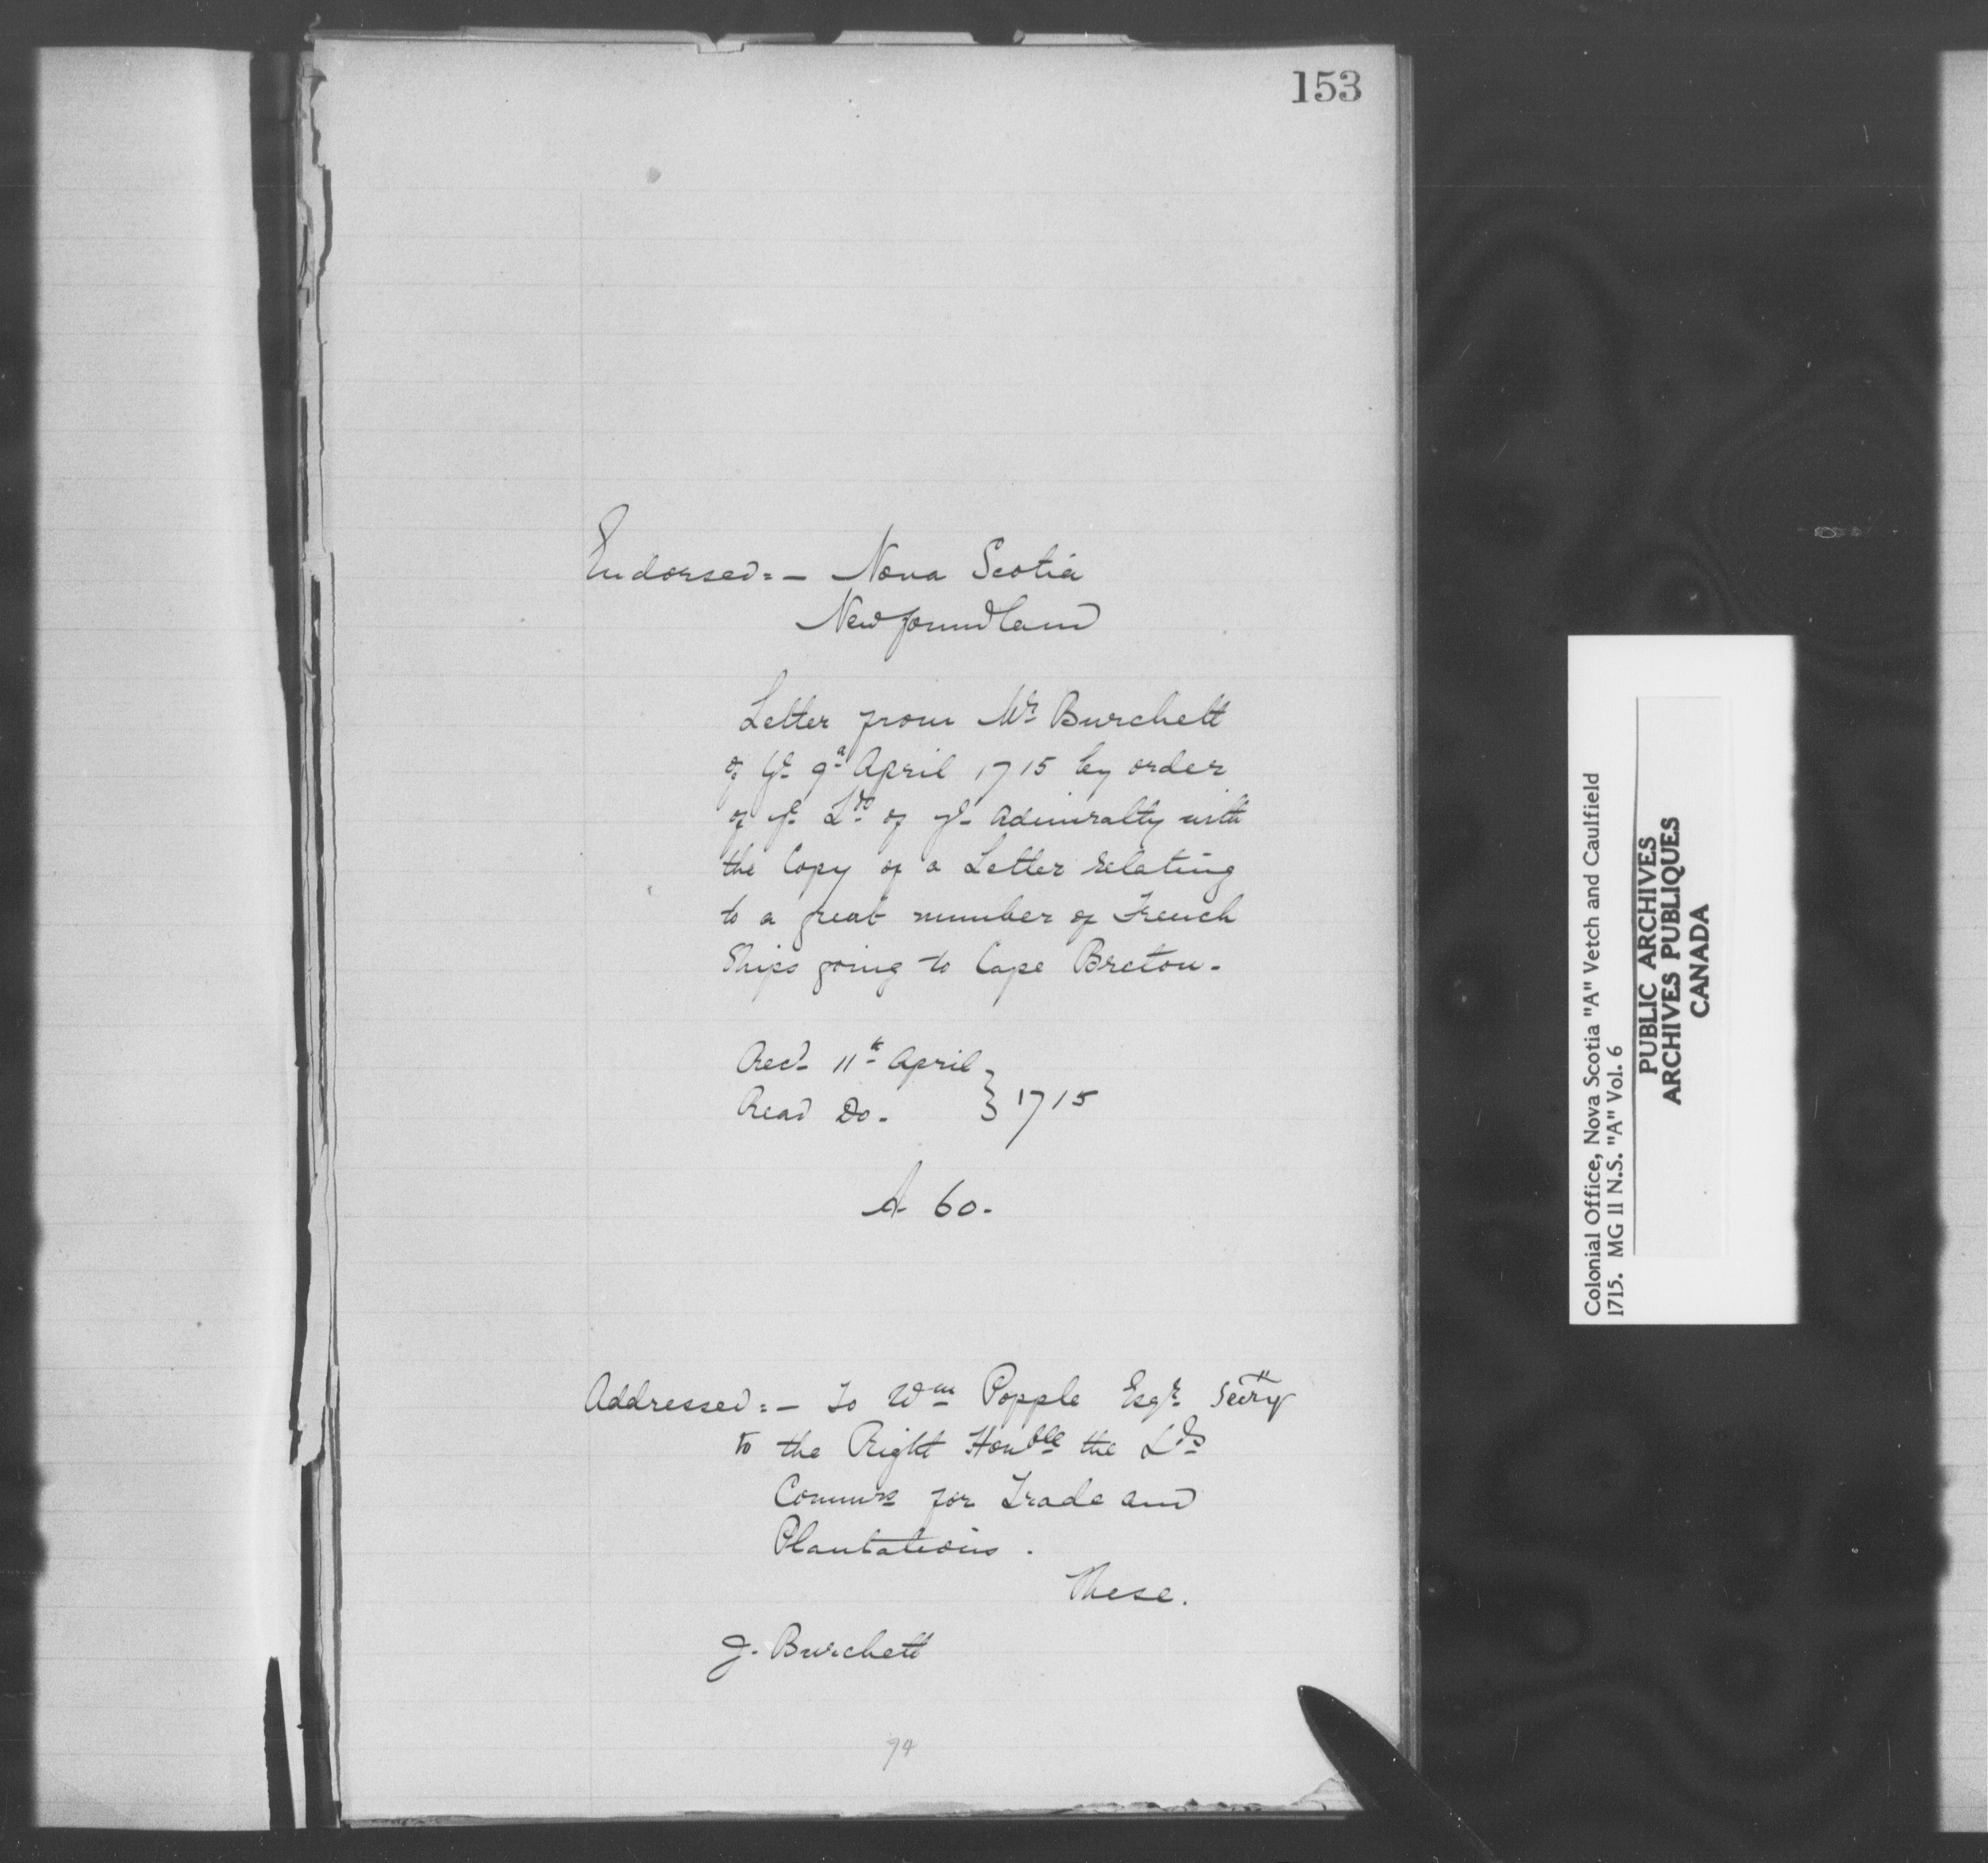 153
Endorsed:- Nova Scotia
Newfoundland
Letter from Mr Burchett
of ye 9th April 1715 by order
of ye Lds of ye Admiralty with
the Copy of a Letter relating
to a great number of French
Ships going to Cape Breton.
Recd 11th April } 1715
Read Do.
A 60.
Addressed:- To Wm Popple Esqr Secry
to the Right Honble the Lds
Commrs for Trade and
Plantations.
These.
J. Burchett
94
Colonial Office, Nova Scotia "A" Vetch and Caulfield
1715. MG 11 N.S. "A" Vol. 6
PUBLIC ARCHIVES
ARCHIVES PUBLIQUES
CANADA